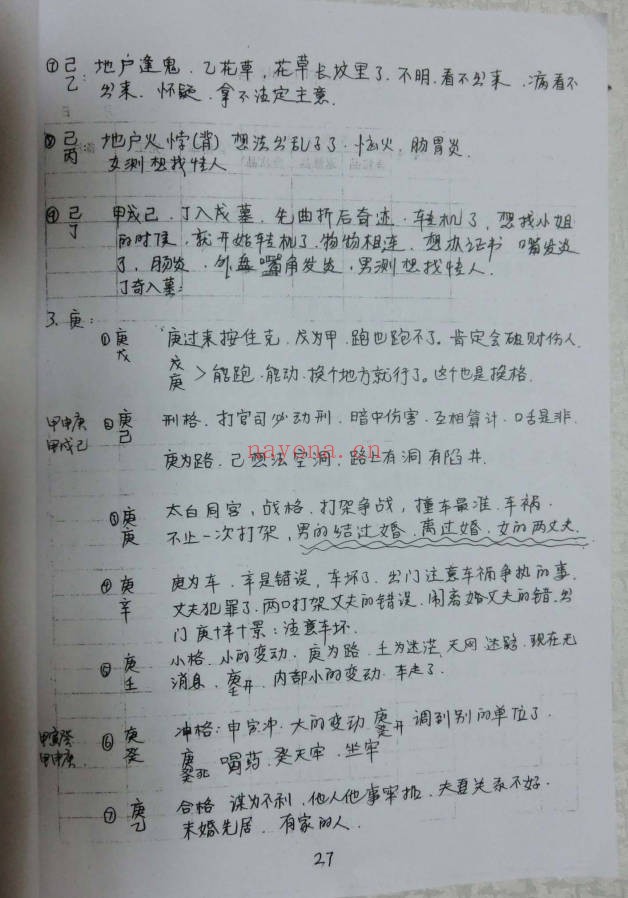 ⑦ 己
乙: 地户逢鬼. 乙花草, 花草长坟里了. 不明. 看不出来. 病看不
出来. 怀疑. 拿不法定主意.
⑧ 己
丙 地户火悖(背) 想法出乱子了. 恼火. 肠胃炎.
女测想找情人
⑨ 己
丁 甲戌己. 丁入戌墓. 先曲折后奇迹. 转机了. 想找小姐
的时候, 就开始转机了. 物物相连. 想办证书 嘴发炎
了, 肠炎. 外 嘴角发炎. 男测想找情人.
丁奇入墓:
3. 庚:
① 庚
戊 庚过来按住克. 戊为甲. 跑也跑不了. 肯定会破财伤人.
戊
庚 > 能跑. 能动. 换个地方就行了。这个也是换格.
甲申庚
甲戌己
② 庚
己 刑格. 打官司必动刑. 暗中伤害. 互相算计. 口舌是非.
庚为路. 己想法空洞. 路上有洞有陷井.
nayona.cn
③ 庚
庚 太白同宫, 战格. 打架争战, 撞车最准. 车祸.
不止一次打架, 男的结过婚. 离过婚. 女的两丈夫.
④ 庚
辛 庚为车. 辛是错误, 车坏了. 出门注意车祸争执的事.
丈夫犯罪了. 两口打架丈夫的错误. 闹离婚丈夫的错. 出
门 庚+辛+景: 注意车坏.
⑤ 庚
壬 小格. 小的变动. 庚为路. 土为迷茫. 天网 迷路. 现在无
消息. 庚
壬 开. 内部小的变动. 车走了.
甲寅癸
甲申庚
⑥ 庚
癸 冲格: 申寅冲. 大的变动 庚
癸 开 调到别的单位了.
庚
癸 死 喝药. 癸天牢. 坐牢
⑦ 庚
乙 合格 谋为不利. 他人他事牢扯. 夫妻关系不好.
未婚先居. 有家的人.
27